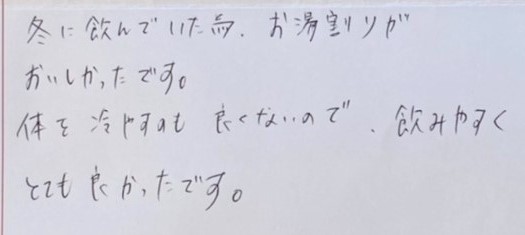 冬に飲んでいた為、お湯割りが
おいしかったです。
体を冷やすのも良くないので、飲みやすく
とても良かったです。